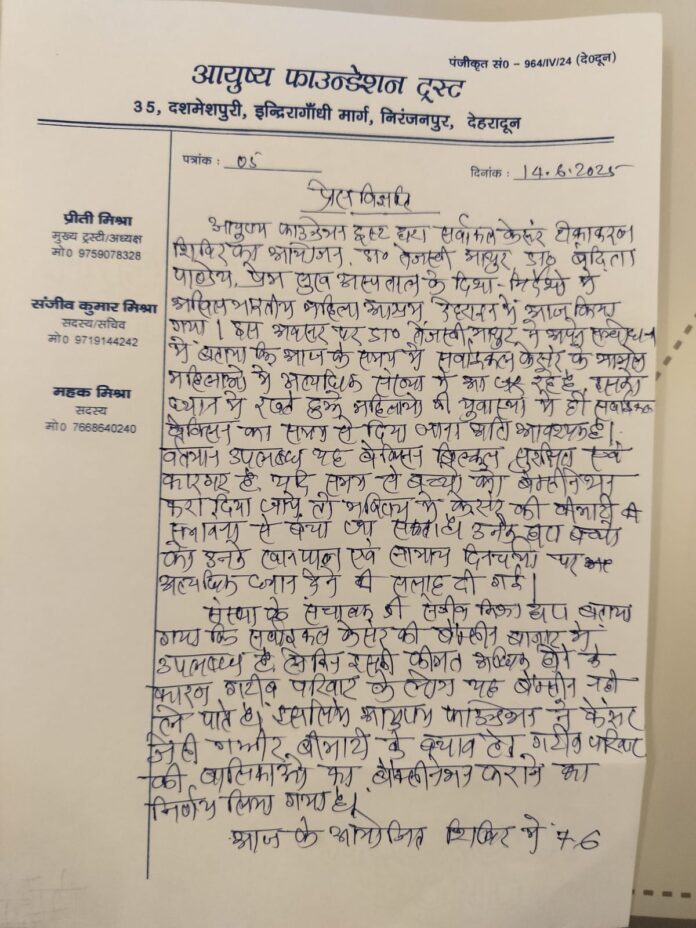 पंजीकृत सं0 - 964/IV/24 (दे0दून)
आयुष्य फाउन्डेशन ट्रस्ट
35, दशमेशपुरी, इन्दिरागाँधी मार्ग, निरंजनपुर, देहरादून
पत्रांक : 05
दिनांक : 14.6.2025
प्रीती मिश्रा
मुख्य ट्रस्टी/अध्यक्ष
मो0 9759078328
संजीव कुमार मिश्रा
सदस्य/सचिव
मो0 9719144242
महक मिश्रा
सदस्य
मो0 7668640240
प्रेस विज्ञप्ति
आयुष्य फाउंडेशन ट्रस्ट द्वारा सर्वाइकल कैंसर टीकाकरण
शिविर का आयोजन डा० तेजस्वी डा०
पाण्डेय, प्रेम सुख अस्पताल के दिशा-निर्देशो में
अखिल भारतीय महिला आश्रम देहरादून में आज किया
गया। इस अवसर पर डा० तेजस्वी ने अपने सम्बोधन
में बताया कि आज के समय में सर्वाइकल कैंसर के मामले
महिलाओ में अत्यधिक संख्या में आ रहे है, इसको
ध्यान में रखते हुये महिलाओ की युवास्था में ही सर्वाइकल
वैक्सिन का समय से दिया जाना अति आवश्यक है।
वर्तमान उपलब्ध यह वैक्सिन बिल्कुल सुरक्षित एवं
कारगर है, यदि समय से बच्चो का वैक्सीनेशन
करा दिया जाये तो भविष्य में कैंसर की बीमारी की
सम्भावना से बचा जा सकता है उनके द्वारा बच्चो
को उनके खानपान एवं सामान्य दिनचर्या पर
अत्यधिक ध्यान देने की सलाह दी गई।
संस्था के संचालक श्री संजीव मिश्रा द्वारा बताया
गया कि सर्वाइकल कैंसर की वैक्सीन बाजार में
उपलब्ध है, लेकिन इसकी कीमत अधिक होने के
कारण गरीब परिवार के लोग यह वैक्सीन नही
ले पाते है। इसलिये आयुष्य फाउंडेशन ने कैंसर
जैसी गम्भीर बीमारी के बचाव हेतु गरीब परिवार
की बालिकाओं का वैक्सीनेशन कराने का
निर्णय लिया गया है।
आज के आयोजित शिविर में 76